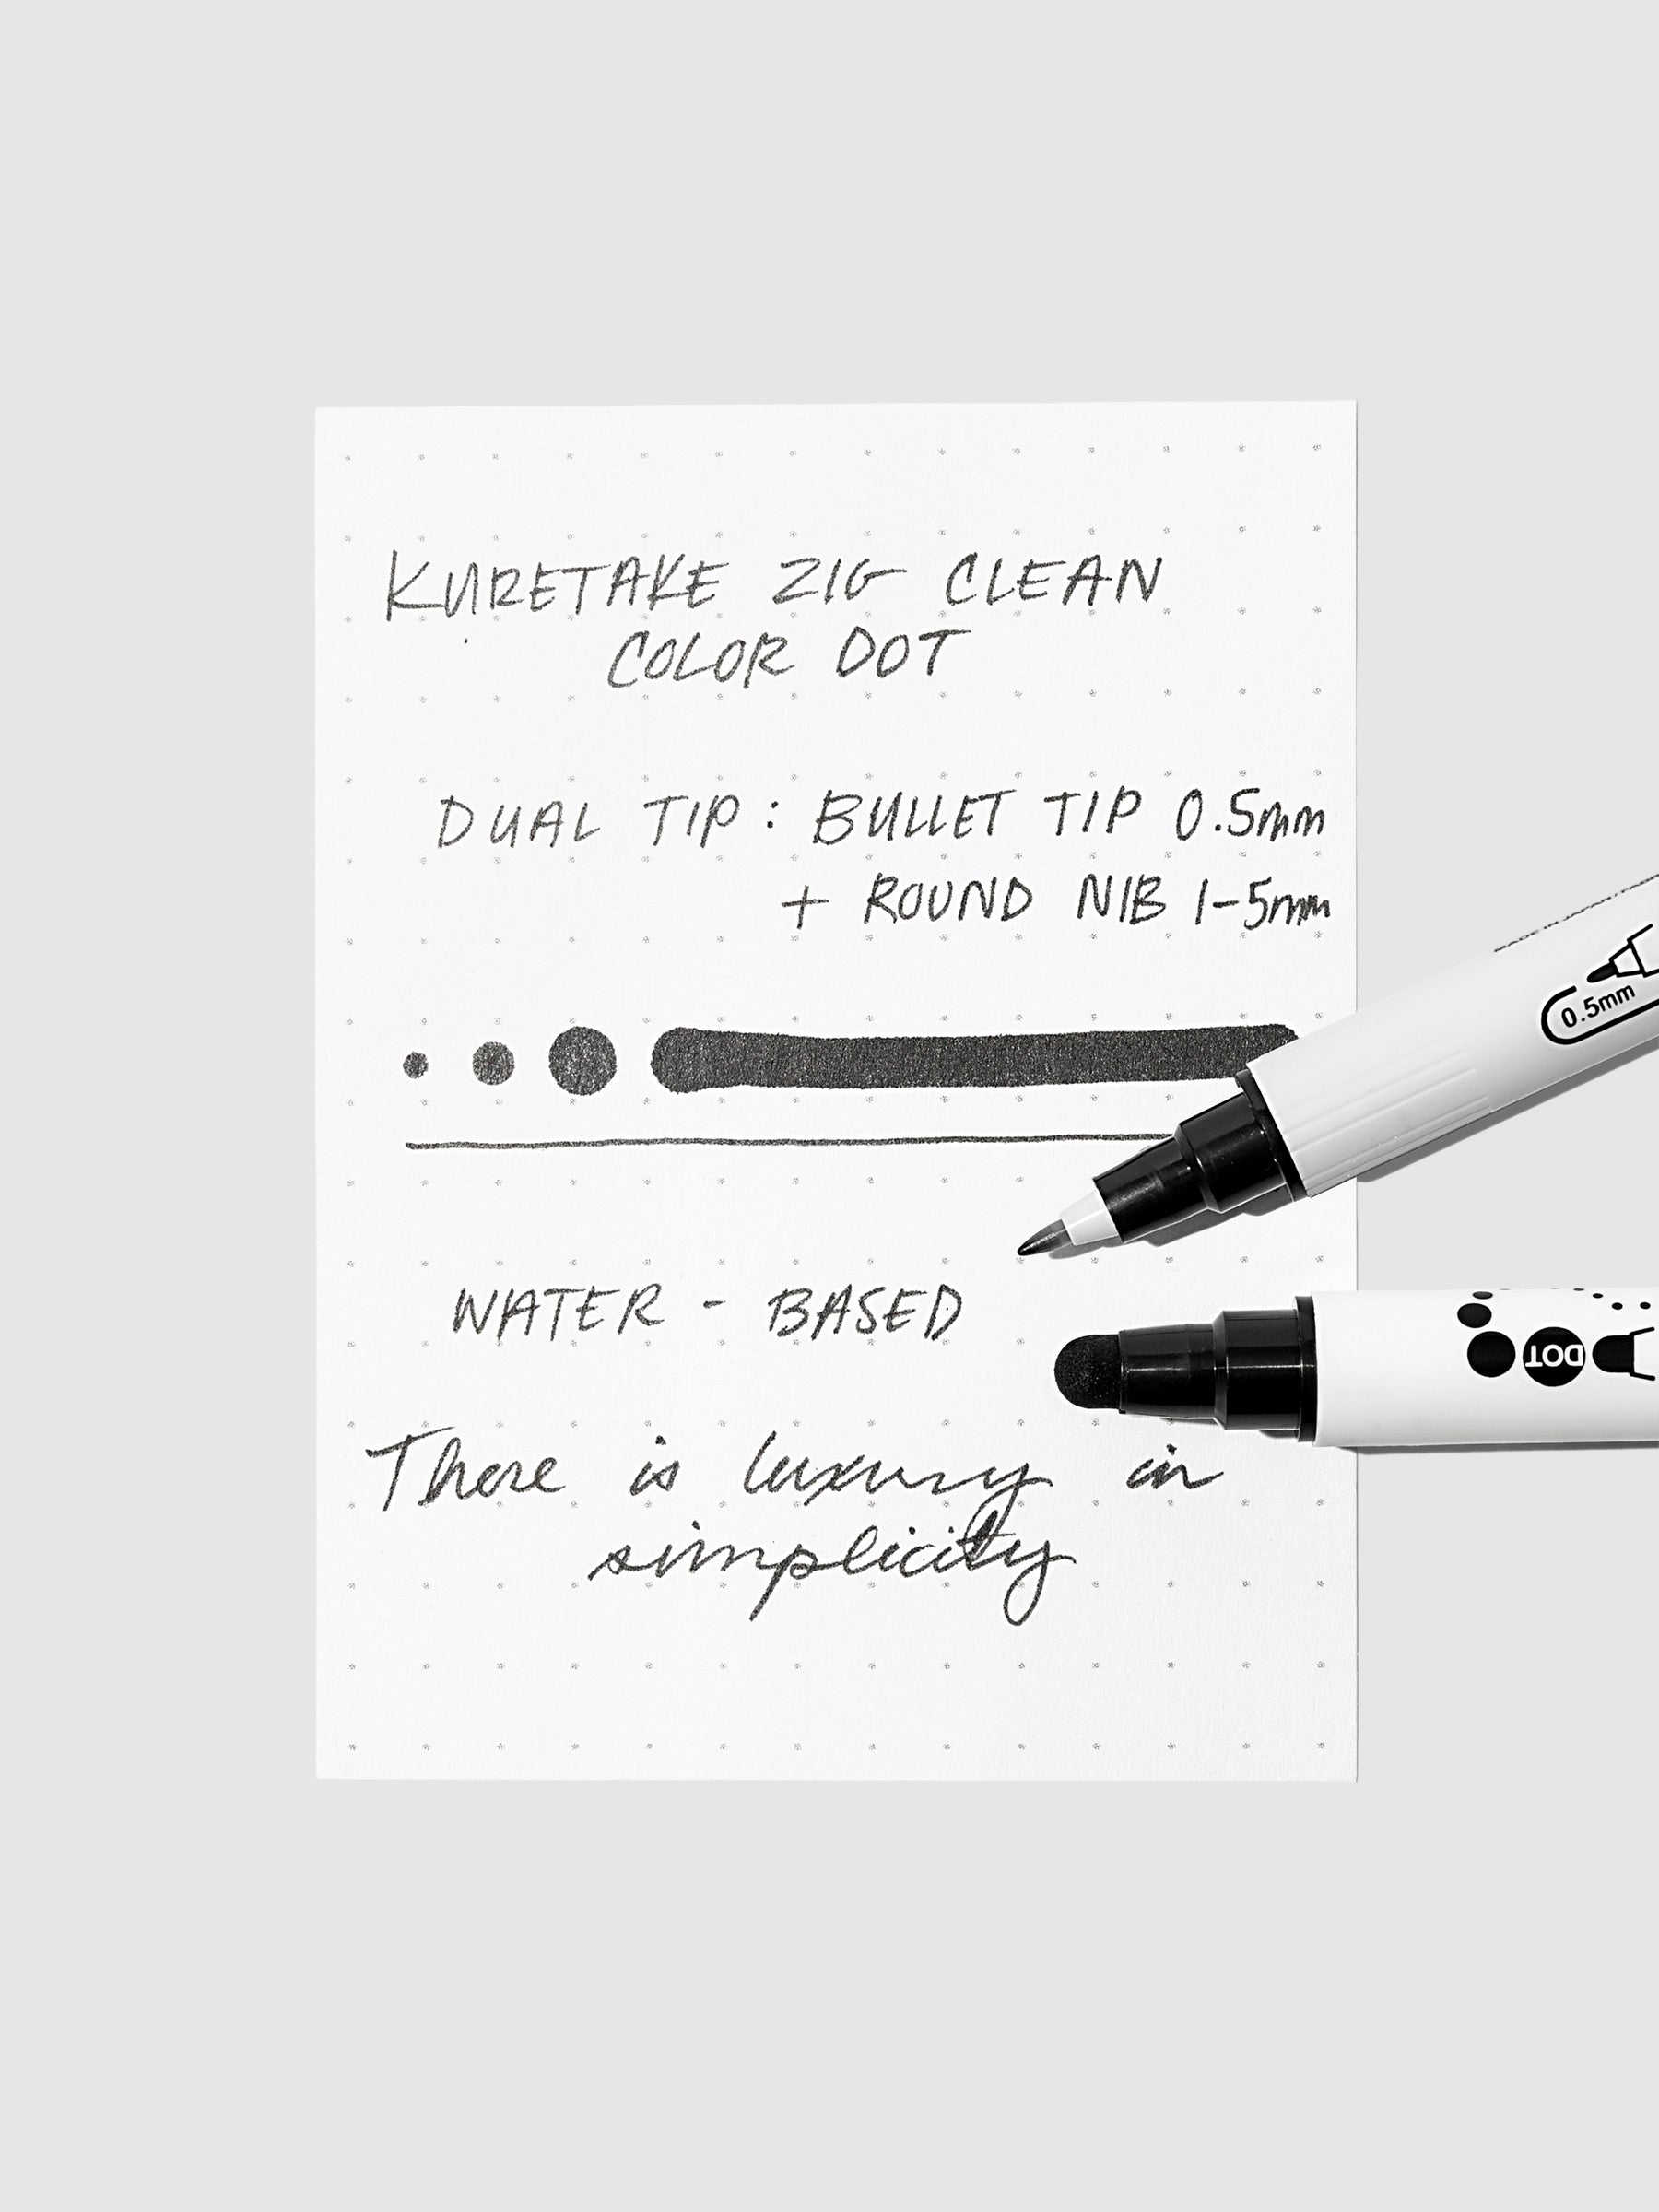 KURETAKE ZIG CLEAN
COLOR DOT
DUAL TIP: BULLET TIP 0.5mm
+ ROUND NIB 1-5mm
0.5mm
WATER - BASED
DOT
There is luxury in
simplicity